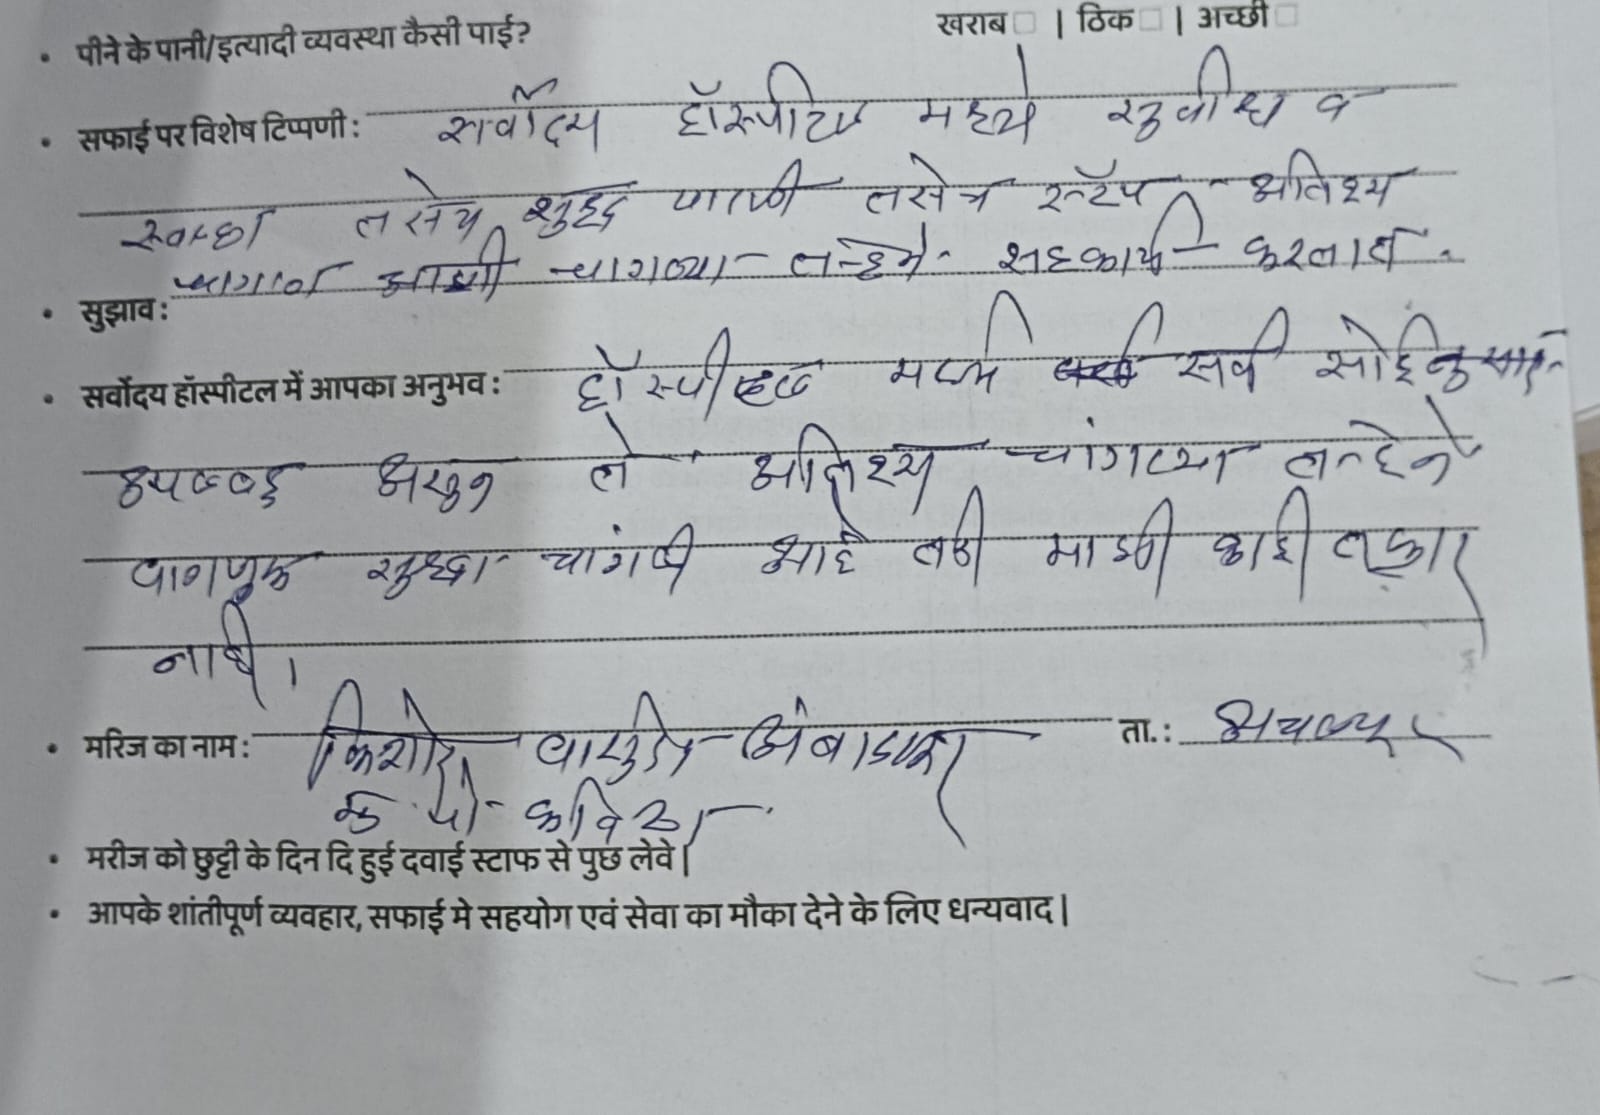 • पीने के पानी/इत्यादी व्यवस्था कैसी पाई? खराब□ | ठिक□ | अच्छी□
• सफाई पर विशेष टिप्पणी : सर्वोदय हॉस्पीटल मध्ये सुवीधा व
तसेच शुद्ध पाणी तसेच स्टॅप अतिश्य
चांगला आणी चांगल्या तऱ्हेने सहकार्य करतात.
• सुझाव :
• सर्वोदय हॉस्पीटल में आपका अनुभव : हॉस्पीटल मध्ये सर्व सोई
असुन ते अतिश्य चांगल्या तऱ्हेने
वागणुक सुध्दा चांगली आहे तरी माझी काही तक्रार
नाही।
• मरिज का नाम : किशोर वासुदेव अंबाडकर ता. : अचलपूर
मु. पो.
• मरीज को छुट्टी के दिन दि हुई दवाई स्टाफ से पुछ लेवे |
• आपके शांतीपूर्ण व्यवहार, सफाई मे सहयोग एवं सेवा का मौका देने के लिए धन्यवाद |